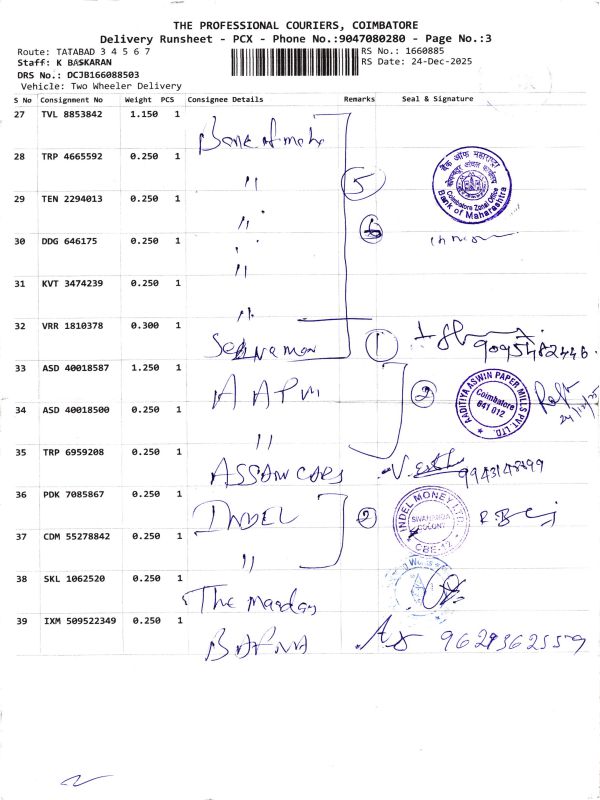 THE PROFESSIONAL COURIERS, COIMBATORE
Delivery Runsheet - PCX - Phone No.:9047080280 - Page No.:3
Route: TATABAD 3 4 5 6 7
RS No.: 1660885
Staff: K BASKARAN
RS Date: 24-Dec-2025
DRS No.: DCJB166088503
Vehicle: Two Wheeler Delivery
S No Consignment No Weight PCS Consignee Details Remarks Seal & Signature
27 TVL 8853842 1.150 1
28 TRP 4665592 0.250 1 "
5
बैंक ऑफ महाराष्ट्र
Coimbatore Zonal Office
Bank of Maharashtra
29 TEN 2294013 0.250 1 "
6
30 DDG 646175 0.250 1 "
31 KVT 3474239 0.250 1 "
32 VRR 1810378 0.300 1
1
33 ASD 40018587 1.250 1 AAPM
2
AADITIYA ASWIN PAPER MILLS PVT. LTD.
Coimbatore
641 012
34 ASD 40018500 0.250 1 "
35 TRP 6959208 0.250 1 ASSAW CARS
36 PDK 7085867 0.250 1 INDEL
2
INDEL MONEY LTD.
CBE-12
37 CDM 55278842 0.250 1 "
38 SKL 1062520 0.250 1 The
39 IXM 509522349 0.250 1 BAFNA